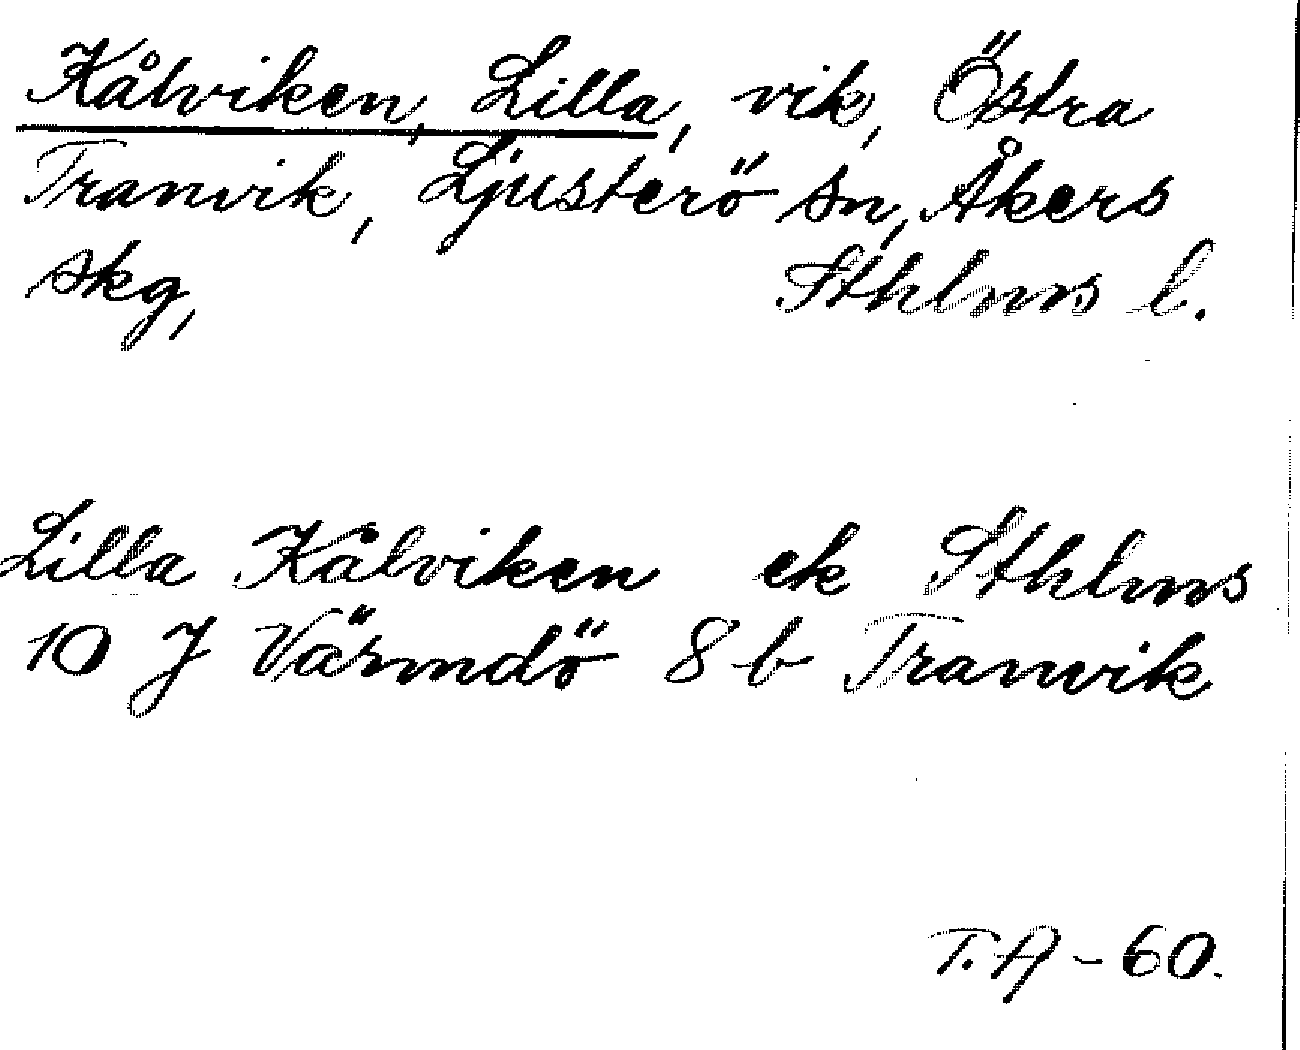 Kålviken, Lilla, vik, Östra
Tranvik, Ljusterö sn, Åkers
skg, Sthlms l.
Lilla Kålviken ek Sthlms
10 J Värmdö 8 b Tranvik
T. A - 60.